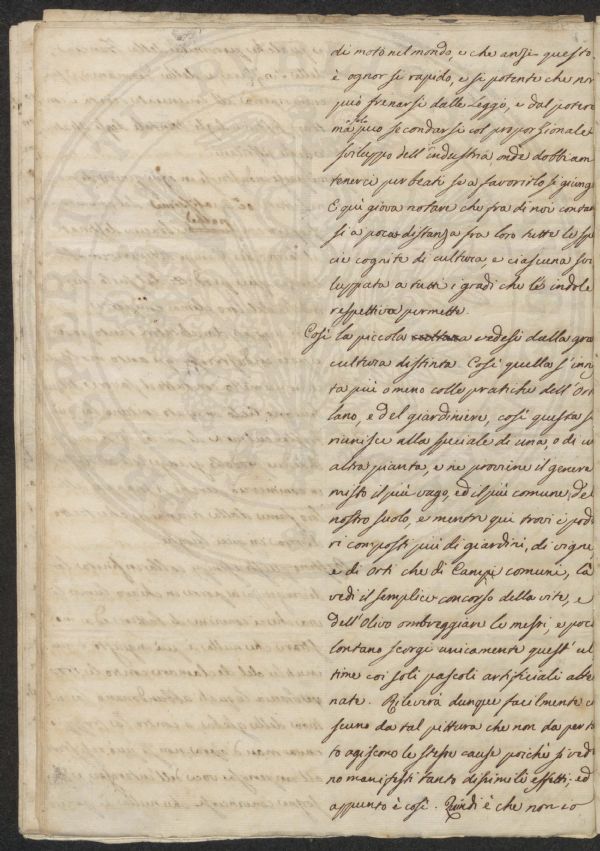 di moto nel mondo, e che anzi questo
è ognor sì rapido, e sì potente che non
può frenarsi dalle Leggi, e dal potere
ma solo può secondarsi col proporzionale
sviluppo dell'industria onde dobbiam
tenerci per beati se a favorirlo si giung
E quì giova notare che fra di noi contan
si a poca distanza fra loro tutte le spe
cie cognite di cultura, e ciascuna svi
luppata a tutti i gradi che l'è indole
respettiva permette.
Così la piccola vedesi dalla gran
cultura distinta. Così quella s'inne
ta più o meno colle pratiche dell'Orto
lano, e del giardiniere, così questa si
riunisce alla speciale di una, o di un
altra pianta, e ne proviene il genere
misto il più vago, ed il più comune del
nostro suolo, e mentre quì trovi i pode
ri composti più di giardini, di vigne,
e di orti che di Campi comuni, là
vedi il semplice concorso della vite, e
dell'Olivo ombreggiare le messi, e poco
lontano scorgi unicamente quest'ul
time coi soli pascoli artificiali alter
nate. Rileverà dunque facilmente cia
scuno da tal pittura che non da per tut
to agiscono le stesse cause poichè si vedo
no manifesti tanto dissimili effetti; ed
appunto è così. Quindi è che non io